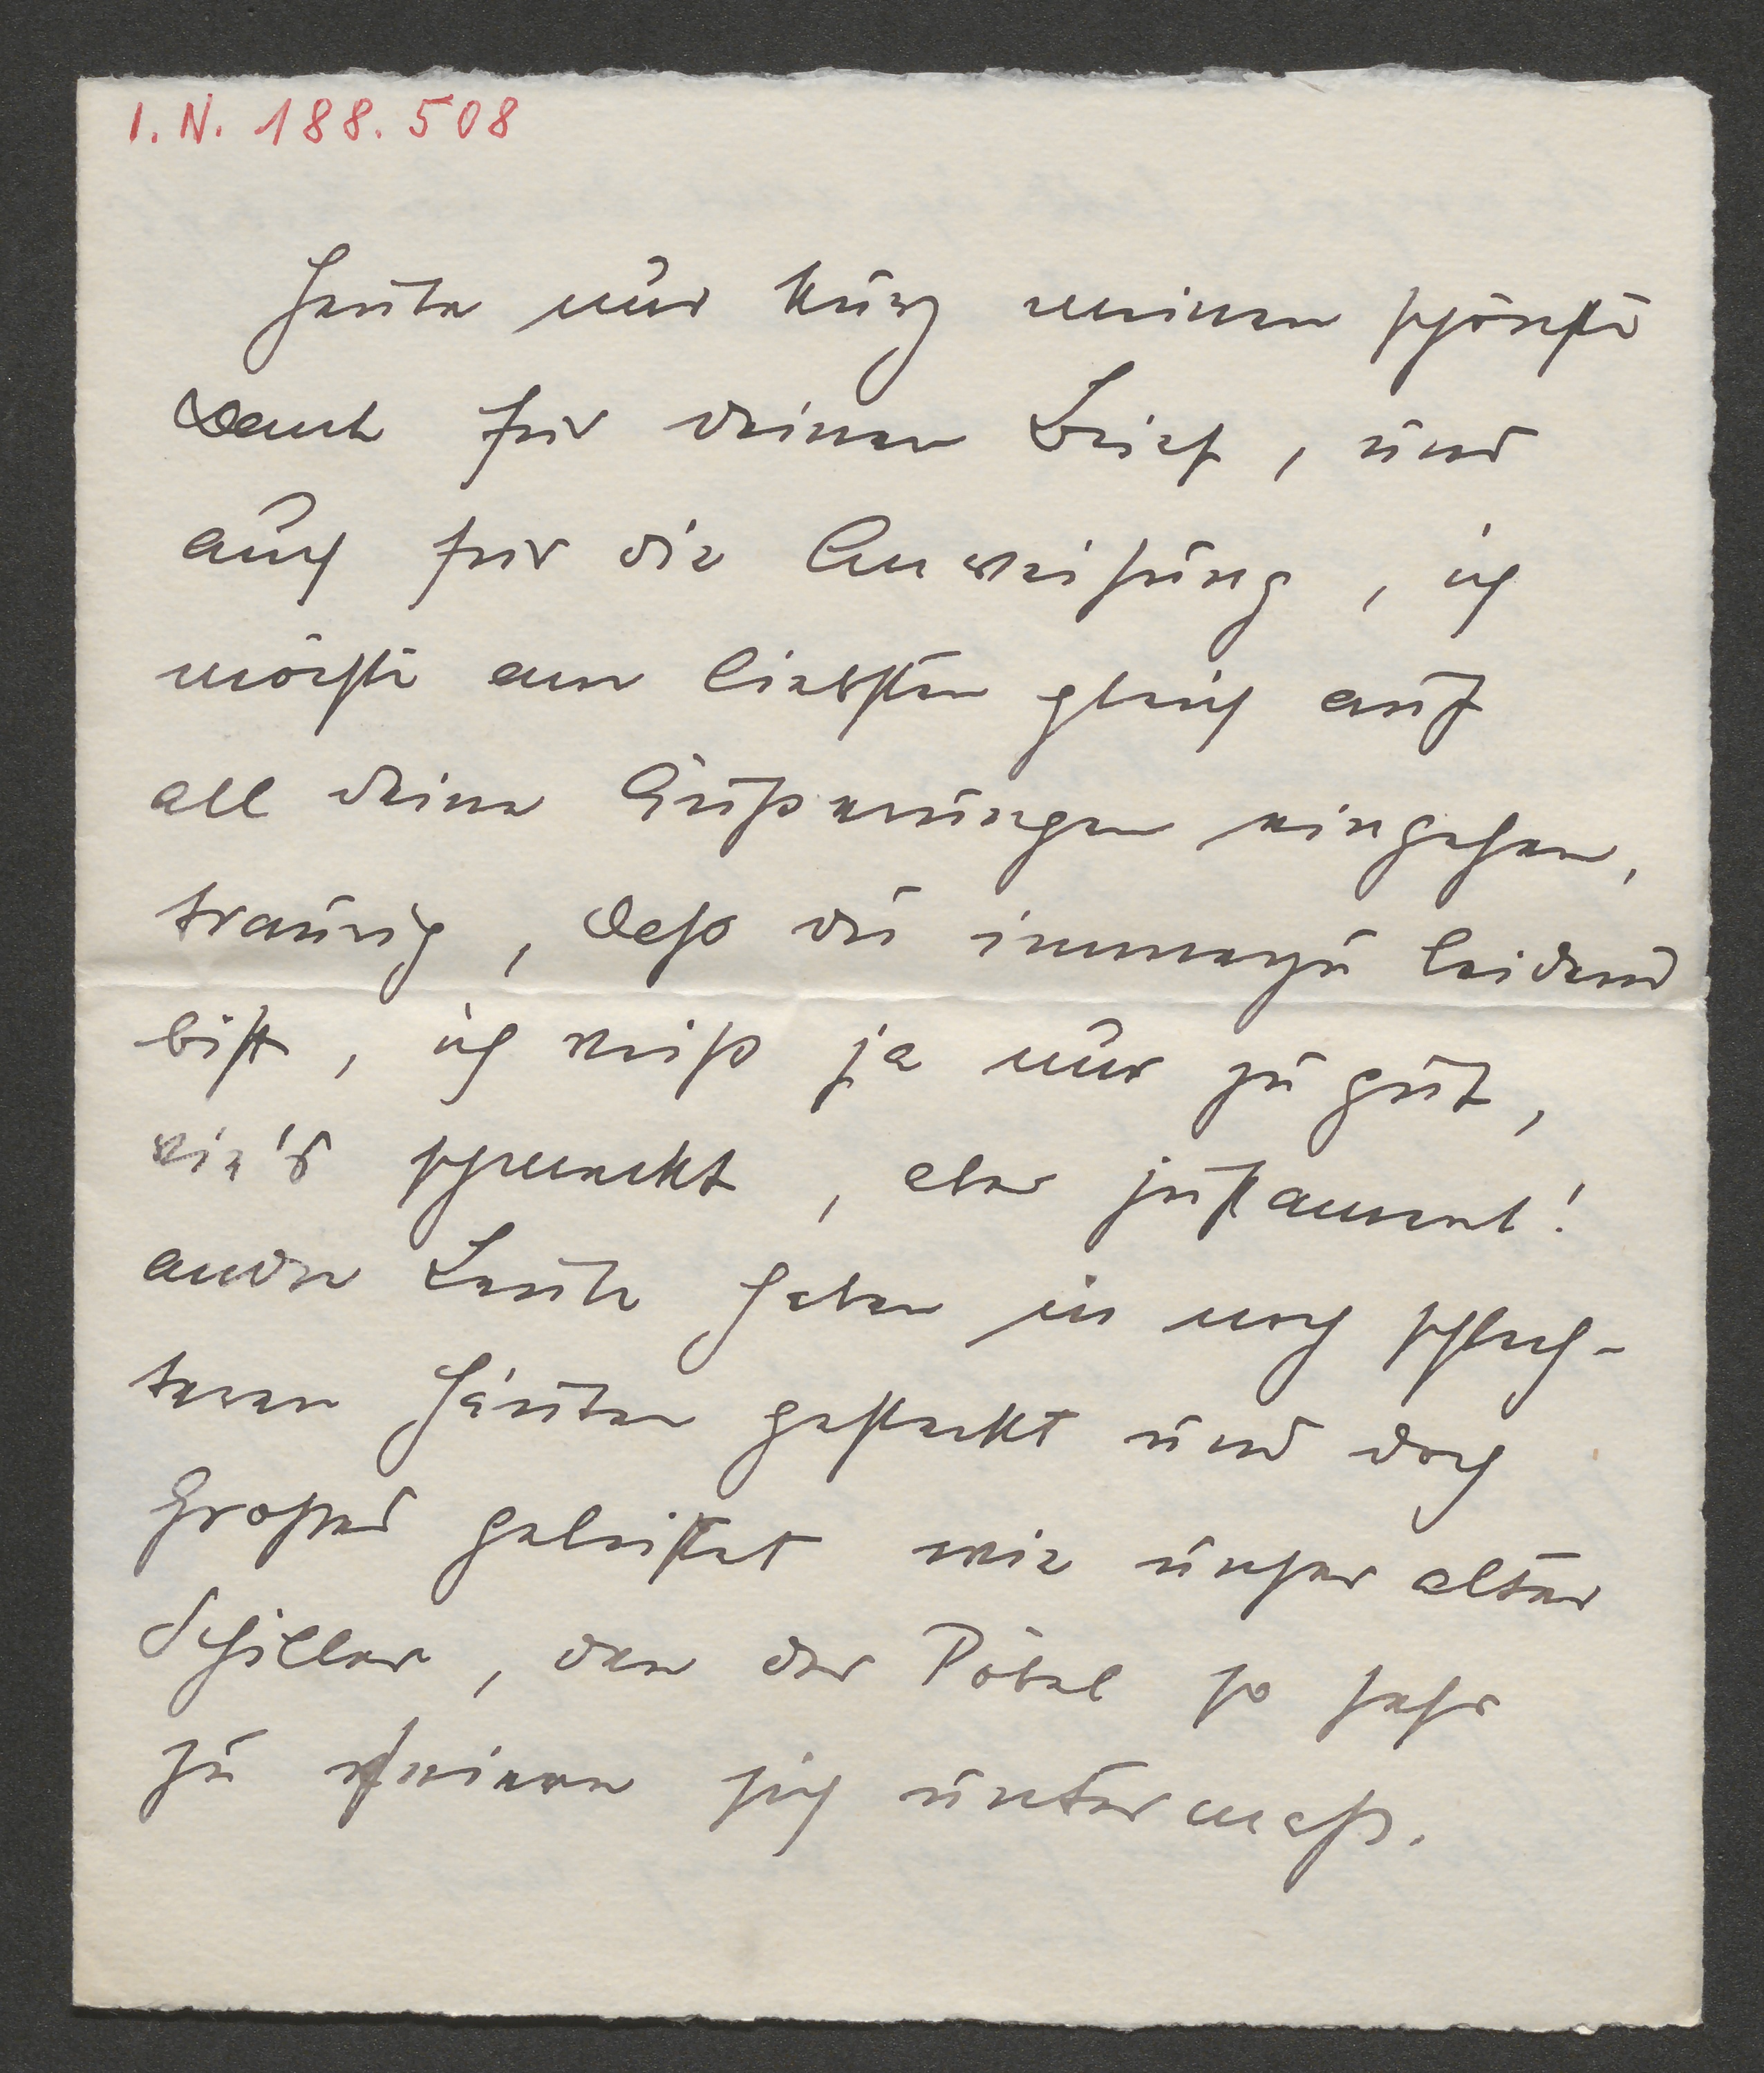 I. N. 188.508
Heute nur kurz meinen schönsten
Dank für deinen Brief, und
auch für die Anweisung, ich
möchte am liebsten gleich auf
all deine Äußerungen eingehen,
traurig, daß du immerzu leidend
bist, ich weiß ja nur zu gut,
wie's schmeckt, aber justament!
andre Leute haben in noch schlech-
teren Häuten gesteckt und doch
Großes geleistet wie unser alter
Schiller, den der Pöbel so sehr
zu sich untermaß.